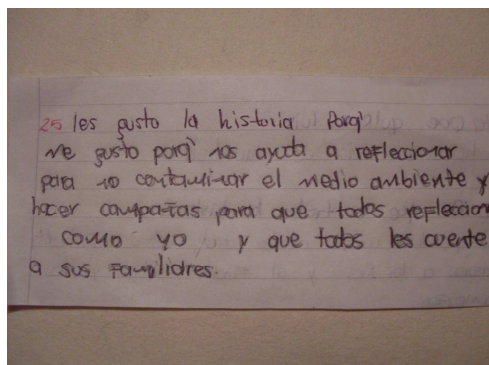 25 les gusto la historia Porq'
Me gusto porq' nos ayuda a refleccionar
para no contaminar el medio ambiente y
hacer campañas para que todos refleccion
como yo y que todos les cuente
a sus Familiares.